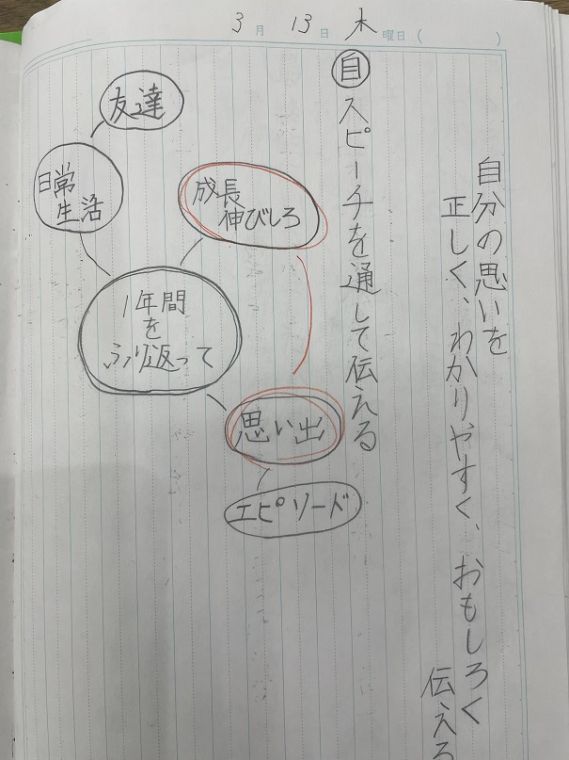 3月 13日 木曜日( )
自分の思いを
正しく、わかりやすく、おもしろく
伝える
自 スピーチを通して伝える
友達
日常
生活
成長
伸びしろ
1年間
を
ふり返って
思い出
エピソード